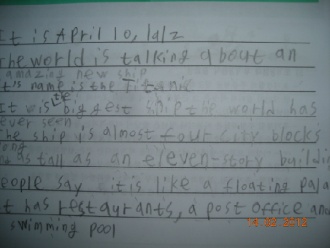 It is April 10, 1912
The world is talking about an
amazing new ship
It's name is the Titanic
It wis the biggest ship the world has
ever seen
The ship is almost four city blocks
long
as tall as an eleven-story buildin
eople say it is like a floating pala
t has restaurants, a post office and
swimming pool